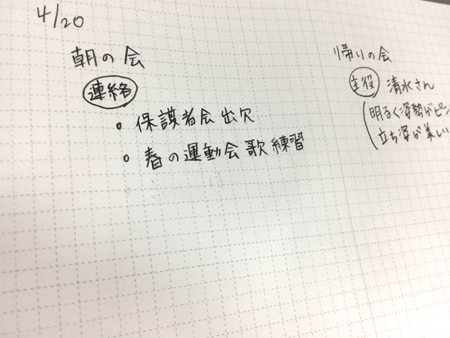 4/20
朝の会
連絡
。保護者会出欠
。春の運動会歌練習
帰りの会
主役 清水さん
(明るく姿勢がピン
立ち姿が美しい